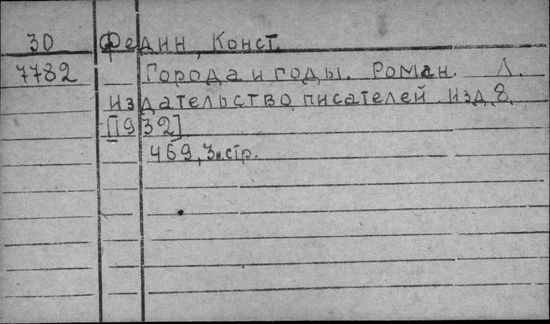 30 Федин, Конст.
7782 Города и годы. Роман. Л.
издательство писателей изд. 8.
[1932]
469, 3н. стр.